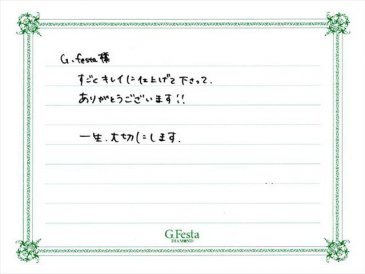 G.festa様
すごくキレイに仕上げて下さって、
ありがとうございます!!
一生、大切にします.
G.Festa
DIAMOND